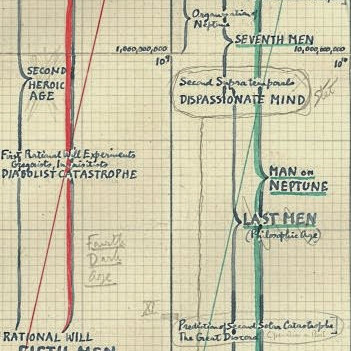 Organization of
Neptune
SEVENTH MEN
1,000,000,000
10⁹
10,000,000,000
10¹⁰
SECOND
HEROIC
AGE
Second Supratemporals
DISPASSIONATE MIND
Stet
First Rational Will Experiments
DIABOLIST CATASTROPHE
MAN ON
NEPTUNE
LAST MEN
(Philosophic Age)
Fourth
Dark
Age
XI
Prediction of Second Solar Catastrophe
The Great Discord
RATIONAL WILL
FIFTH MEN